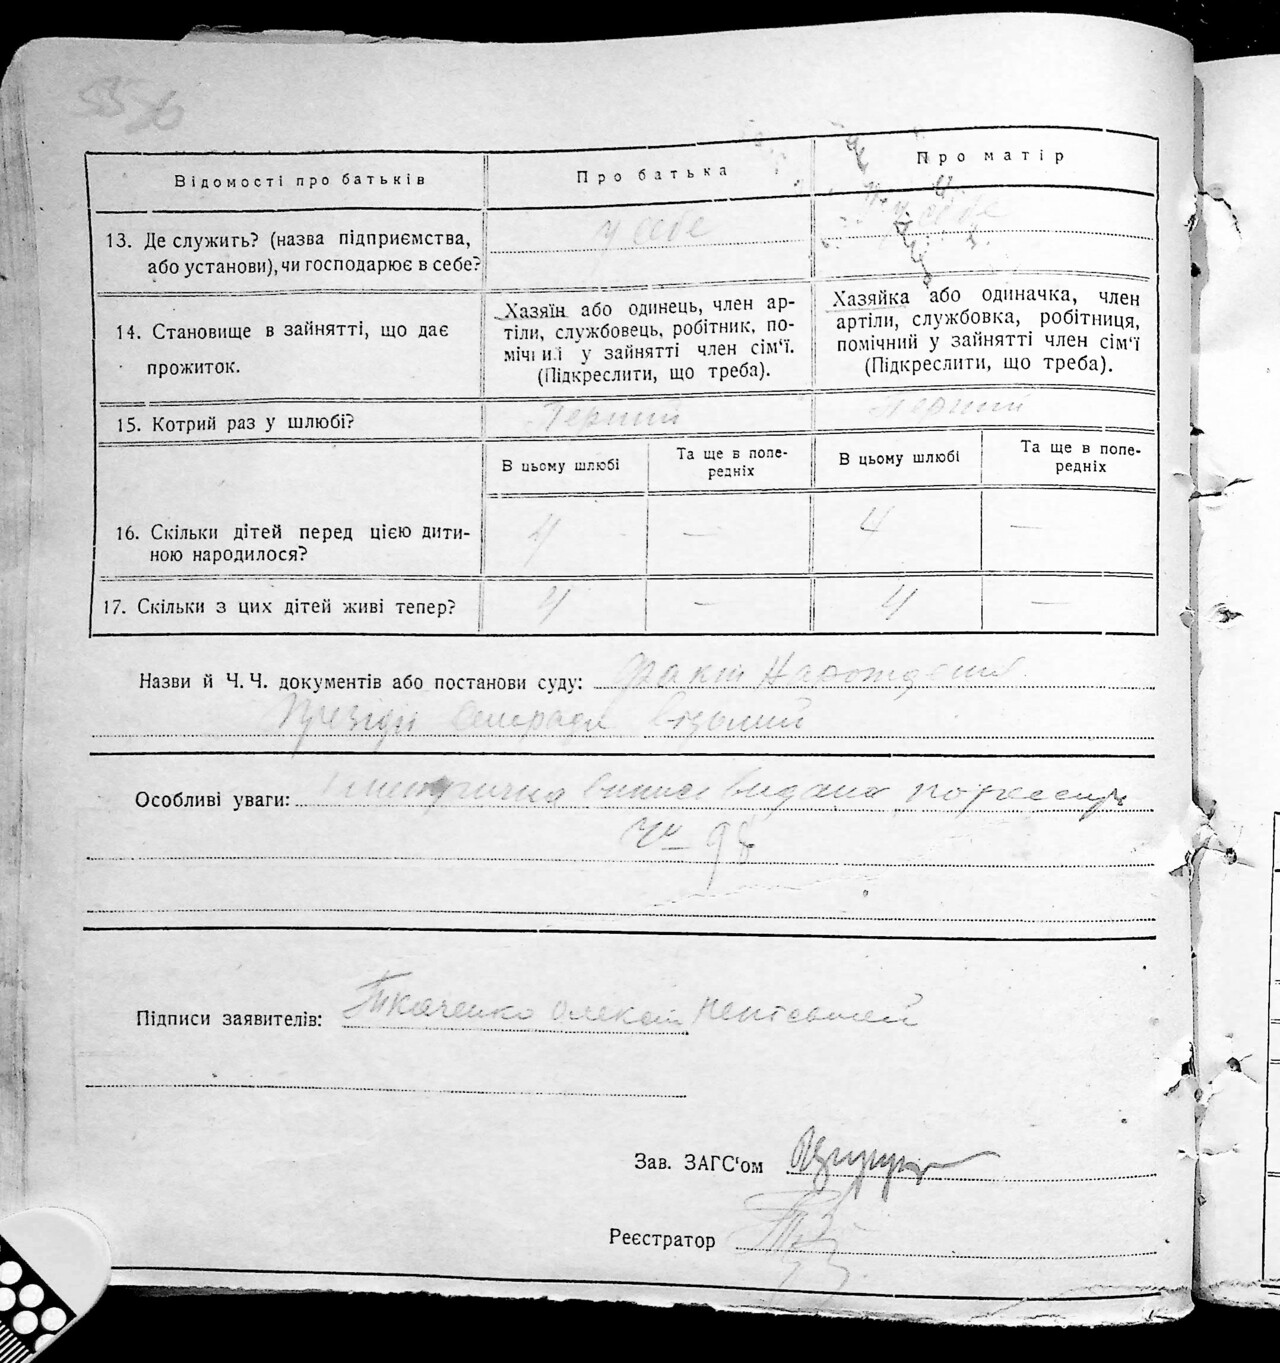 Відомості про батьків
Про батька
Про матір
13. Де служить? (назва підприємства,
або установи), чи господарює в себе?
у себе
14. Становище в зайнятті, що дає
прожиток.
Хазяїн або одинець, член ар-
тіли, службовець, робітник, по-
мічний у зайнятті член сім'ї.
(Підкреслити, що треба).
Хазяйка або одиначка, член
артіли, службовка, робітниця,
помічний у зайнятті член сім'ї
(Підкреслити, що треба).
15. Котрий раз у шлюбі?
Перший
Перший
В цьому шлюбі
Та ще в попе-
редніх
В цьому шлюбі
Та ще в попе-
редніх
16. Скільки дітей перед цією дити-
ною народилося?
4 — 4 —
17. Скільки з цих дітей живі тепер?
4 — 4 —
Назви й Ч. Ч. документів або постанови суду: факт
Особливі уваги: видана
98
Підписи заявителів: Ткаченко Олексій
Зав. ЗАГС'ом
Реєстратор